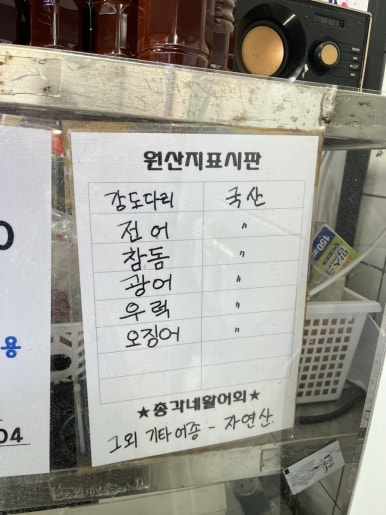 원산지표시판
강도다리 국산
전어 〃
참돔 〃
광어 〃
우럭 〃
오징어 〃
★총각네활어회★
그외 기타어종 - 자연산
용
04
150